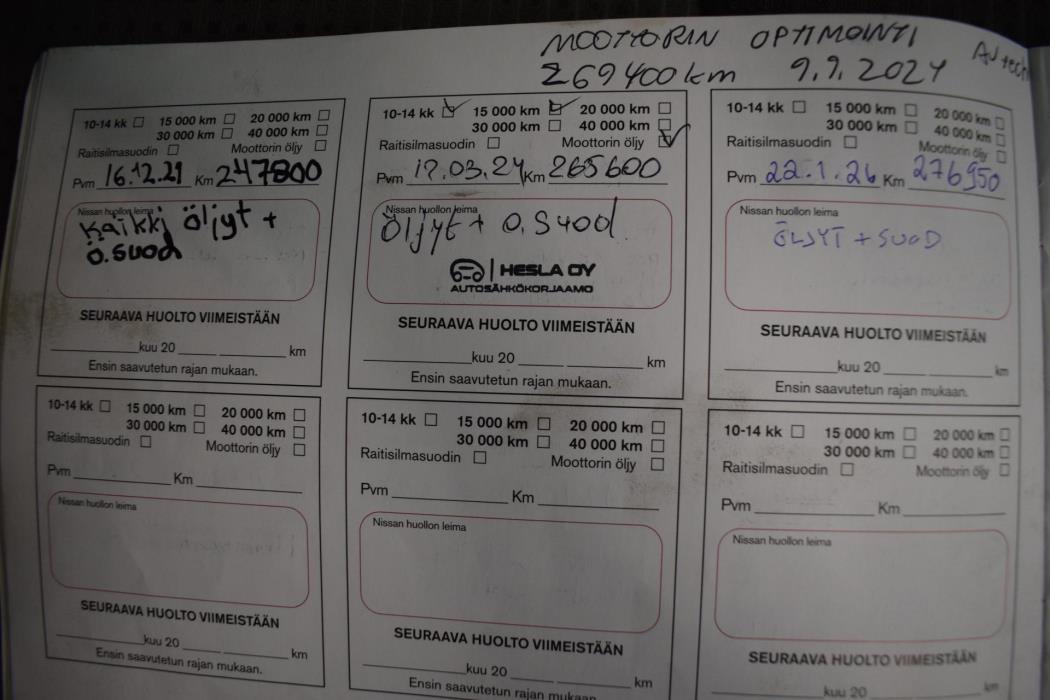 MOOTTORIN OPTIMOINTI
269400km 9.9.2024 AV tech
10-14 kk ☐ 15 000 km ☐ 20 000 km ☐
30 000 km ☐ 40 000 km ☐
Raitisilmasuodin ☐ Moottorin öljy ☐
Pvm 16.12.21 Km 247800
Nissan huollon leima
Kaikki öljyt +
ö.suod
SEURAAVA HUOLTO VIIMEISTÄÄN
kuu 20 km
Ensin saavutetun rajan mukaan.
10-14 kk ☑ 15 000 km ☑ 20 000 km ☐
30 000 km ☐ 40 000 km ☐
Raitisilmasuodin ☐ Moottorin öljy ☑
Pvm 12.03.24 Km 265600
Nissan huollon leima
Öljyt + ö.suod
HESLA OY
AUTOSÄHKÖKORJAAMO
SEURAAVA HUOLTO VIIMEISTÄÄN
kuu 20 km
Ensin saavutetun rajan mukaan.
10-14 kk ☐ 15 000 km ☐ 20 000 km ☐
30 000 km ☐ 40 000 km ☐
Raitisilmasuodin ☐ Moottorin öljy ☐
Pvm 22.1.26 Km 276950
Nissan huollon leima
ÖLJYT + SUOD
SEURAAVA HUOLTO VIIMEISTÄÄN
kuu 20 km
Ensin saavutetun rajan mukaan.
10-14 kk ☐ 15 000 km ☐ 20 000 km ☐
30 000 km ☐ 40 000 km ☐
Raitisilmasuodin ☐ Moottorin öljy ☐
Pvm Km
Nissan huollon leima
SEURAAVA HUOLTO VIIMEISTÄÄN
kuu 20 km
Ensin saavutetun rajan mukaan.
10-14 kk ☐ 15 000 km ☐ 20 000 km ☐
30 000 km ☐ 40 000 km ☐
Raitisilmasuodin ☐ Moottorin öljy ☐
Pvm Km
Nissan huollon leima
SEURAAVA HUOLTO VIIMEISTÄÄN
kuu 20 km
Ensin saavutetun rajan mukaan.
10-14 kk ☐ 15 000 km ☐ 20 000 km ☐
30 000 km ☐ 40 000 km ☐
Raitisilmasuodin ☐ Moottorin öljy ☐
Pvm Km
Nissan huollon leima
SEURAAVA HUOLTO VIIMEISTÄÄN
kuu 20 km